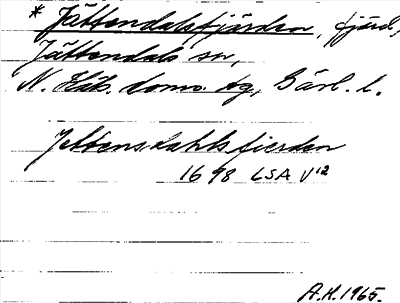 * Jättendalsfjärden, fjärd,
Jättendals sn,
N. Häls. doms. tg, Gävl. l.
Jettensdahlsfierden
1698 LSA V¹²
A.H. 1965.